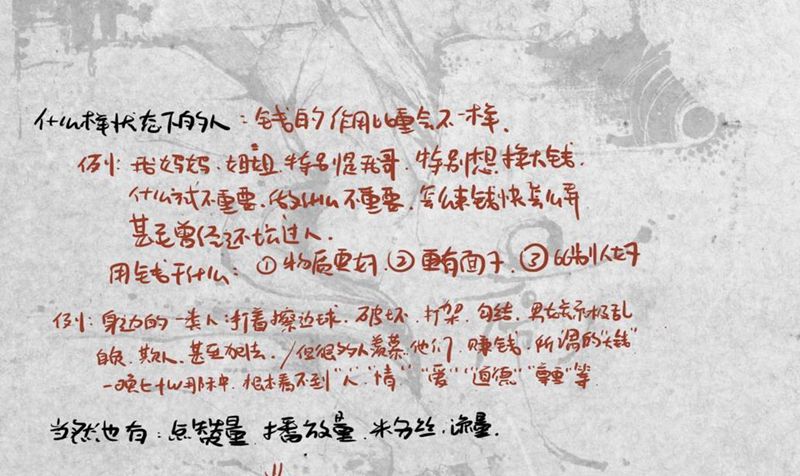 什么样状态下的人：钱的作用也会不一样。
例：我妈妈、姐姐、特别是我哥，特别想挣大钱。
什么方式不重要，做什么不重要，怎么来钱快怎么弄
甚至曾经还坑过人。
用钱干什么：①物质更好，②更有面子，③比别人好
例：身边的一类人：打着擦边球、破坏、打架、勾结、男女关系极乱
欺人、甚至犯法。/但很多人羡慕他们，赚钱，所谓的“大钱”
一顿七千w那种，根本看不到“人”“情”“爱”“道德”等
当然也有：点赞量、播放量、米分丝、流量。